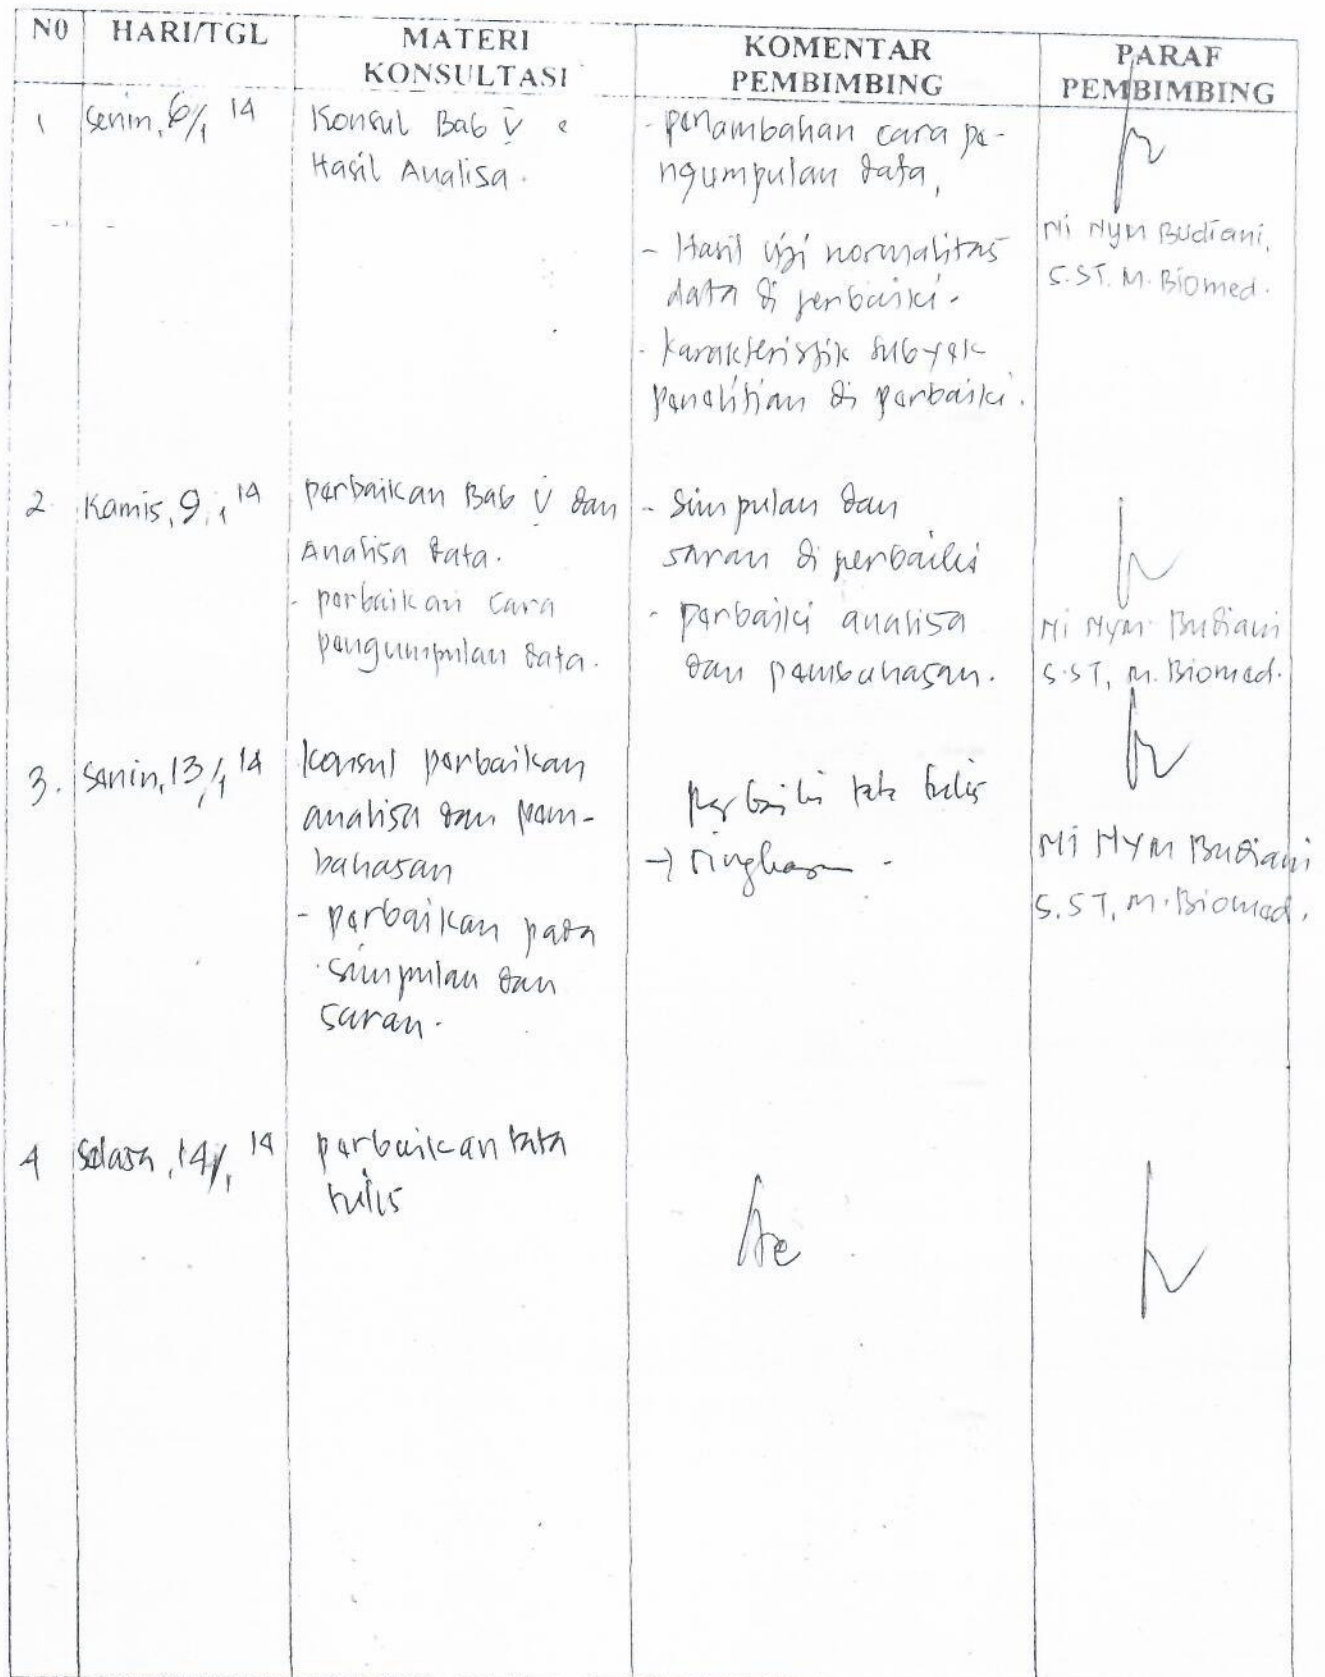 N0 HARI/TGL MATERI KONSULTASI KOMENTAR PEMBIMBING PARAF PEMBIMBING
1 Senin, 6/1 14
Konsul Bab V
Hasil Analisa.
- penambahan cara pe-
ngumpulan data,
- Hasil uji normalitas
data di perbaiki.
- karakteristik subyek
penelitian di perbaiki.
Ni Nym Budiani,
S.ST. M. Biomed.
2. Kamis, 9/1 14
perbaikan Bab V dan
Analisa data.
- perbaikan cara
pengumpulan data.
- Simpulan dan
saran di perbaiki
- perbaiki analisa
dan pembahasan.
Ni Nym Budiani
S.ST, M. Biomed.
3. Senin, 13/1 14
konsul perbaikan
analisa dan pem-
bahasan
- perbaikan pada
simpulan dan
saran.
perbaiki tata tulis
→ ringkasan -
Ni Nym Budiani
S.ST, M. Biomed.
4 Selasa, 14/1 14
perbaikan tata
tulis